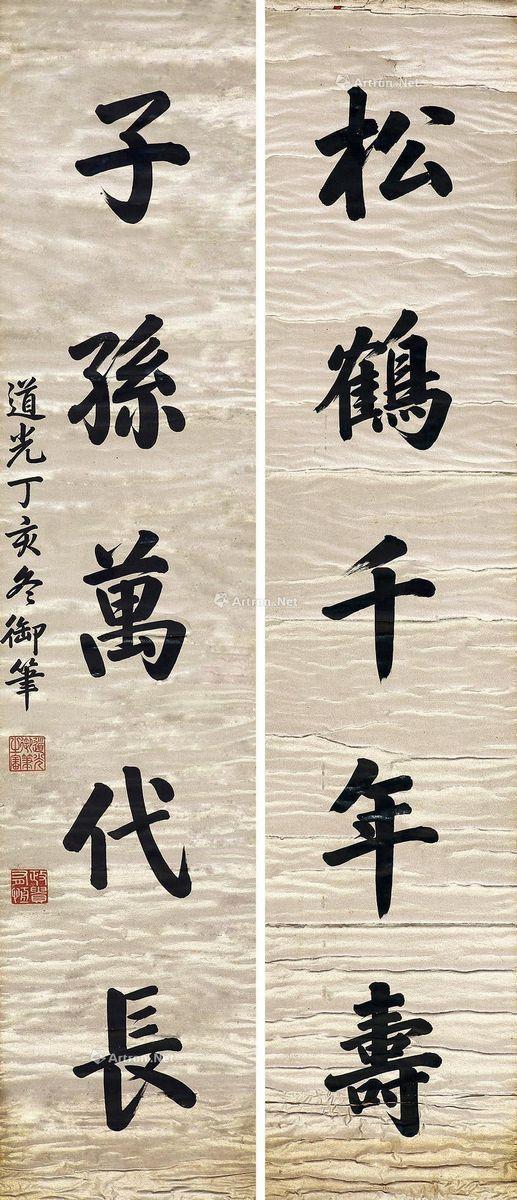 松鶴千年壽
子孫萬代長
道光丁亥冬御筆
Artron.Net
Artron.Net
Artron.Net